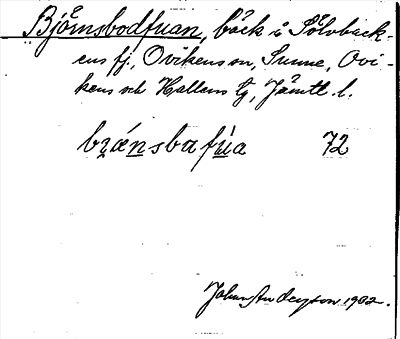 Björnsbodfuan, bäck i Sölvback-
ens fj, Ovikens sn, Sunne, Ovi-
kens och Hallens tg, Jämtl. l.
bránsbafúa 72
Johan Anderson 1902.